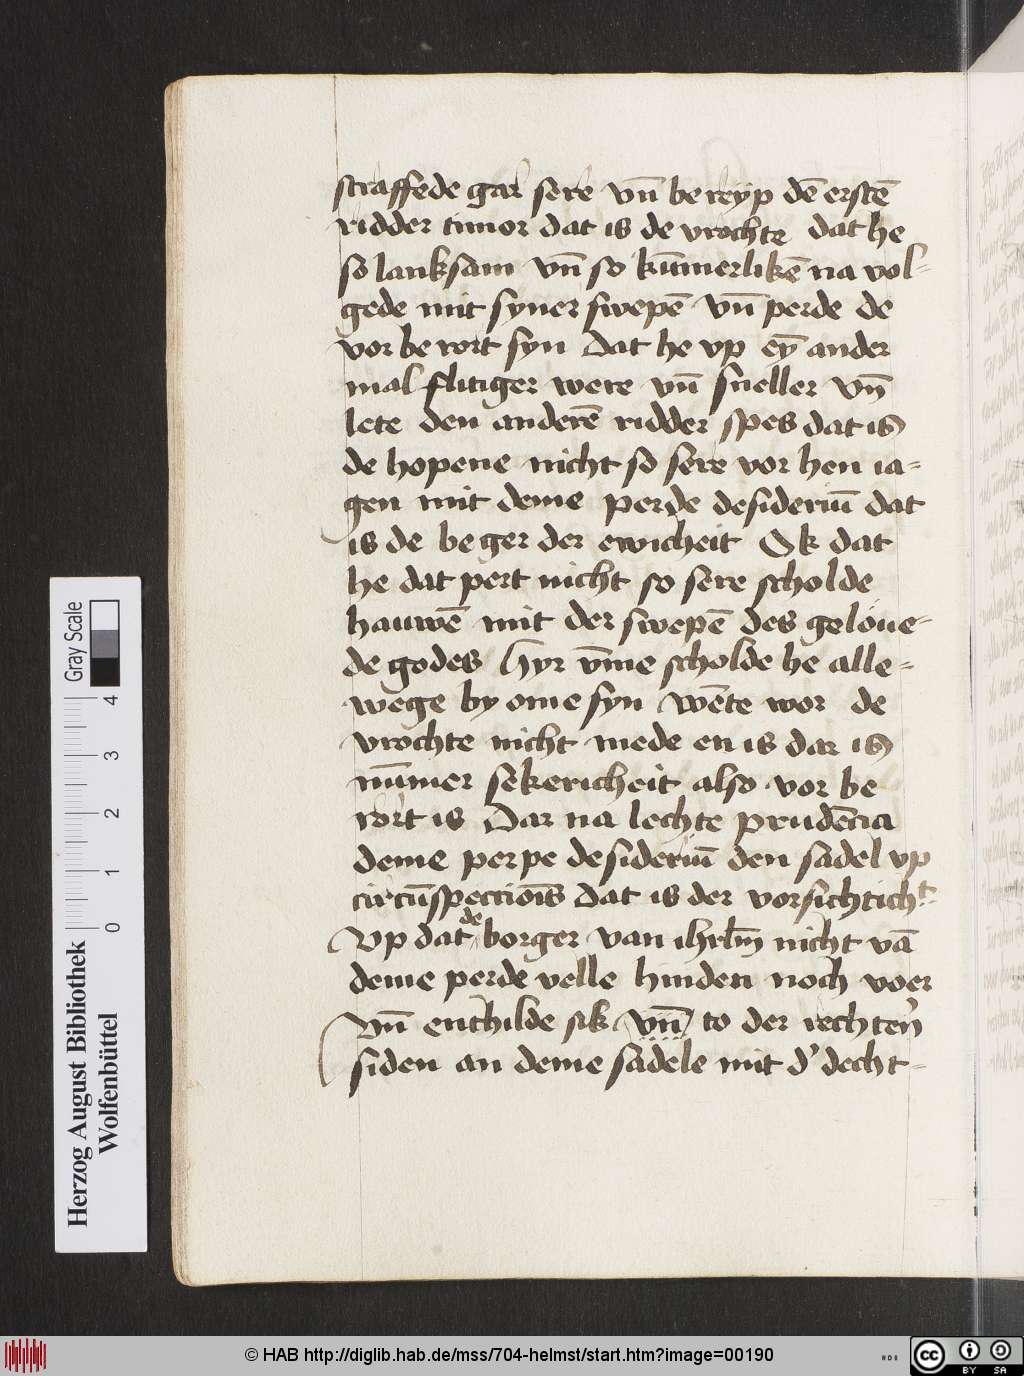 straffede gar sere vn̄ be reyp dē erstē
ridder timor dat is de vrochte dat he
so lanksam vn̄ so kūmerlikē na vol-
gede mit syner swepē vn̄ perde de
vor be rort syn Dat he vp eȳ ander
mal flitiger were vn̄ sneller vn̄
lete den anderē ridder spes dat is
de hopene nicht so sere vor hen ia-
gen mit deme perde desideriū dat
is de be ger der ewicheit Ok dat
he dat pert nicht so sere scholde
hauwē mit der swepē des geloue-
de godes Hyr v̄me scholde he alle-
wege by ome syn Wēte wor de
vrochte nicht mede en is dar is
nūmer sekericheit also vor be
rort is Dar na lechte prudēcia
deme perpe desideriū den sadel vp
circūspecciōis Dat is der vorsichticht-
Vp dat de borger van ihrlm̄ nicht vā
deme perde velle hinden noch voer
Vn̄ enthilde sik vn̄ to der rechten̄
siden an deme sadele mit d' decht-
Gray Scale
4
3
2
1
0
Herzog August Bibliothek
Wolfenbüttel
© HAB http://diglib.hab.de/mss/704-helmst/start.htm?image=00190
cc BY SA